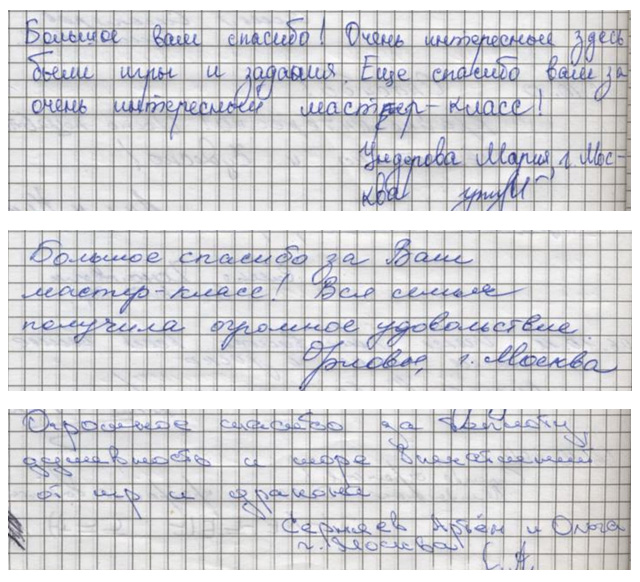 Большое вам спасибо! Очень интересные здесь
были игры и задания. Еще спасибо вам за
очень интересный мастер-класс!
Мария, г. Мос-
ква
Большое спасибо за Ваш
мастер-класс! Вся семья
получила огромное удовольствие.
Орловы, г. Москва
Огромное спасибо за теплоту,
душевность и море впечатлений
от игр и дракона
Артём и Ольга
г. Москва